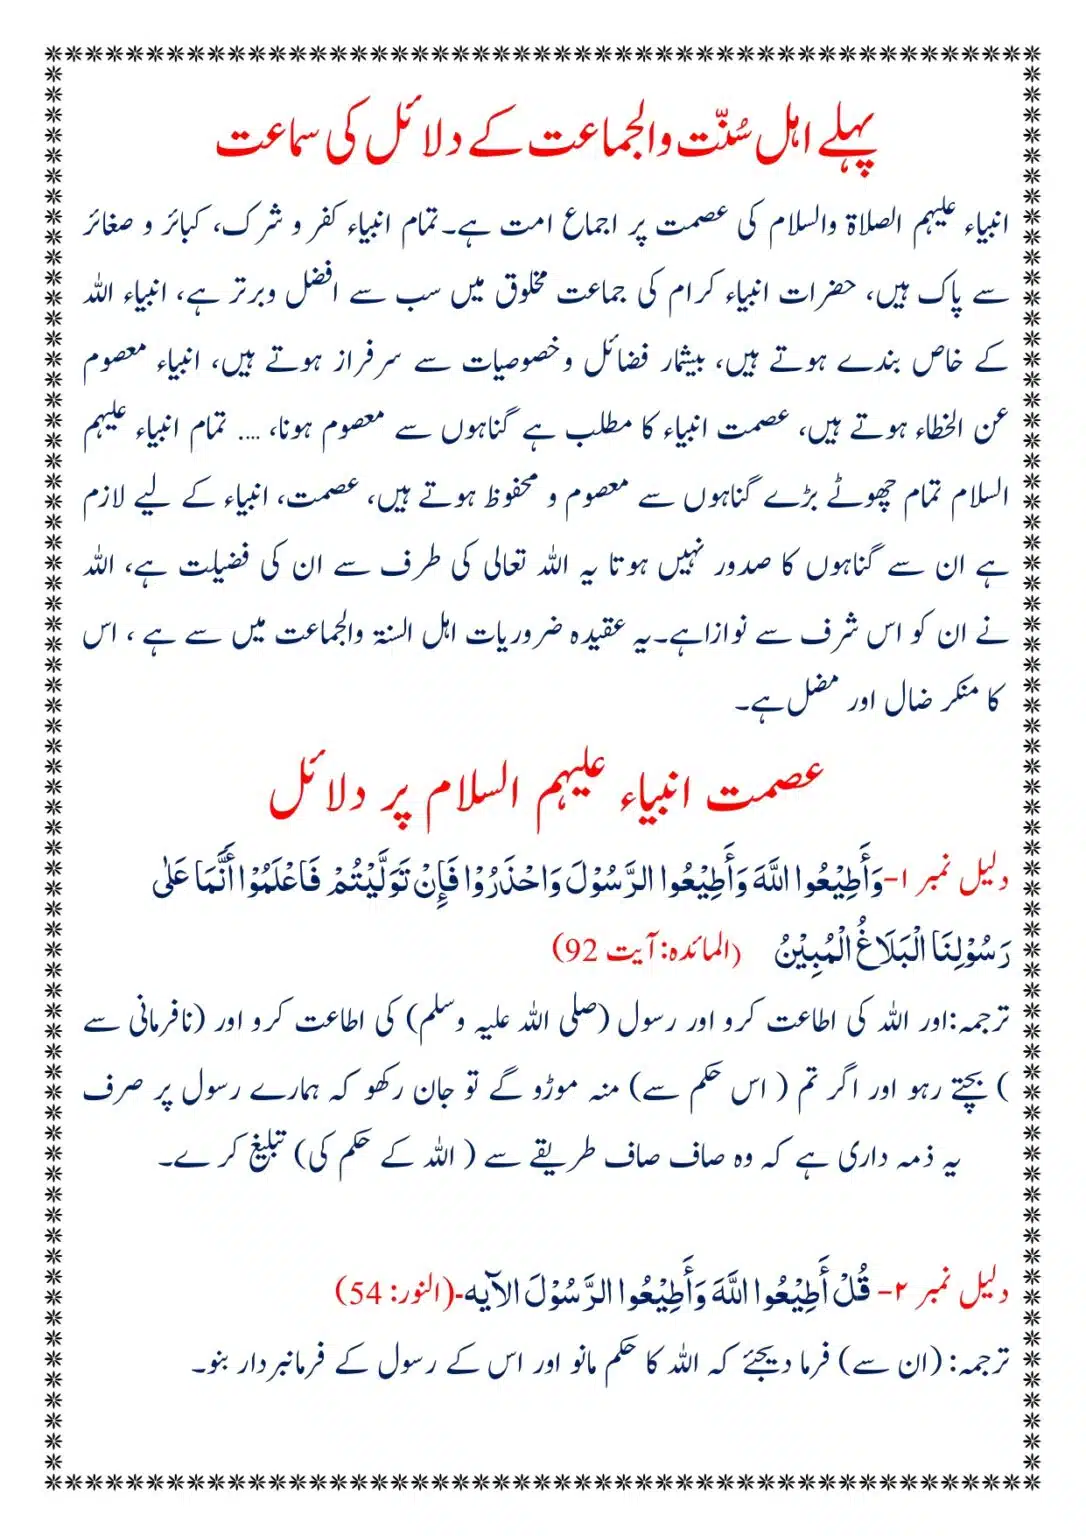 پہلے اہل سُنّت والجماعت کے دلائل کی سماعت
انبیاء علیہم الصلاۃ والسلام کی عصمت پر اجماع امت ہے۔تمام انبیاء کفر و شرک، کبائر و صغائر
سے پاک ہیں، حضرات انبیاء کرام کی جماعت مخلوق میں سب سے افضل وبرتر ہے، انبیاء اللہ
کے خاص بندے ہوتے ہیں، بیشمار فضائل وخصوصیات سے سرفراز ہوتے ہیں، انبیاء معصوم
عن الخطاء ہوتے ہیں، عصمت انبیاء کا مطلب ہے گناہوں سے معصوم ہونا، .... تمام انبیاء علیہم
السلام تمام چھوٹے بڑے گناہوں سے معصوم و محفوظ ہوتے ہیں، عصمت، انبیاء کے لیے لازم
ہے ان سے گناہوں کا صدور نہیں ہوتا یہ اللہ تعالی کی طرف سے ان کی فضیلت ہے، اللہ
نے ان کو اس شرف سے نوازاہے۔یہ عقیدہ ضروریات اہل السنۃ والجماعت میں سے ہے ، اس
کا منکر ضال اور مضل ہے۔
عصمت انبیاء علیہم السلام پر دلائل
دلیل نمبر ۱-وَأَطِيْعُوا اللَّهَ وَأَطِيْعُوا الرَّسُوْلَ وَاحْذَرُوْا فَإِنْ تَوَلَّيْتُمْ فَاعْلَمُوْا أَنَّمَا عَلٰى
رَسُوْلِنَا الْبَلَاغُ الْمُبِيْنُ (المائدہ:آیت 92)
ترجمہ:اور اللہ کی اطاعت کرو اور رسول (صلی اللہ علیہ وسلم) کی اطاعت کرو اور (نافرمانی سے
) بچتے رہو اور اگر تم ( اس حکم سے) منہ موڑو گے تو جان رکھو کہ ہمارے رسول پر صرف
یہ ذمہ داری ہے کہ وہ صاف صاف طریقے سے ( اللہ کے حکم کی) تبلیغ کرے۔
دلیل نمبر ۲- قُلْ أَطِيْعُوا اللَّهَ وَأَطِيْعُوا الرَّسُوْلَ الآیہ-(النور: 54)
ترجمہ: (ان سے) فرما دیجئے کہ اللہ کا حکم مانو اور اس کے رسول کے فرمانبردار بنو۔